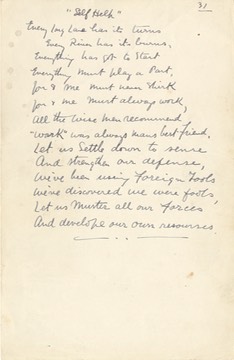 31
"Self Help"
Every Lane has its turns
Every River has its burns,
Everything has got to Start
Everything must play a Part.
You & me must never Shirk
You & me must always work,
All the Wise Men recommend
"Work" was always mans best friend,
Let us Settle down to sense
And strengthen our defense,
We've been using Foreign Tools
We've discovered we were fools,
Let us Muster all our Forces
And develope our own resourses.